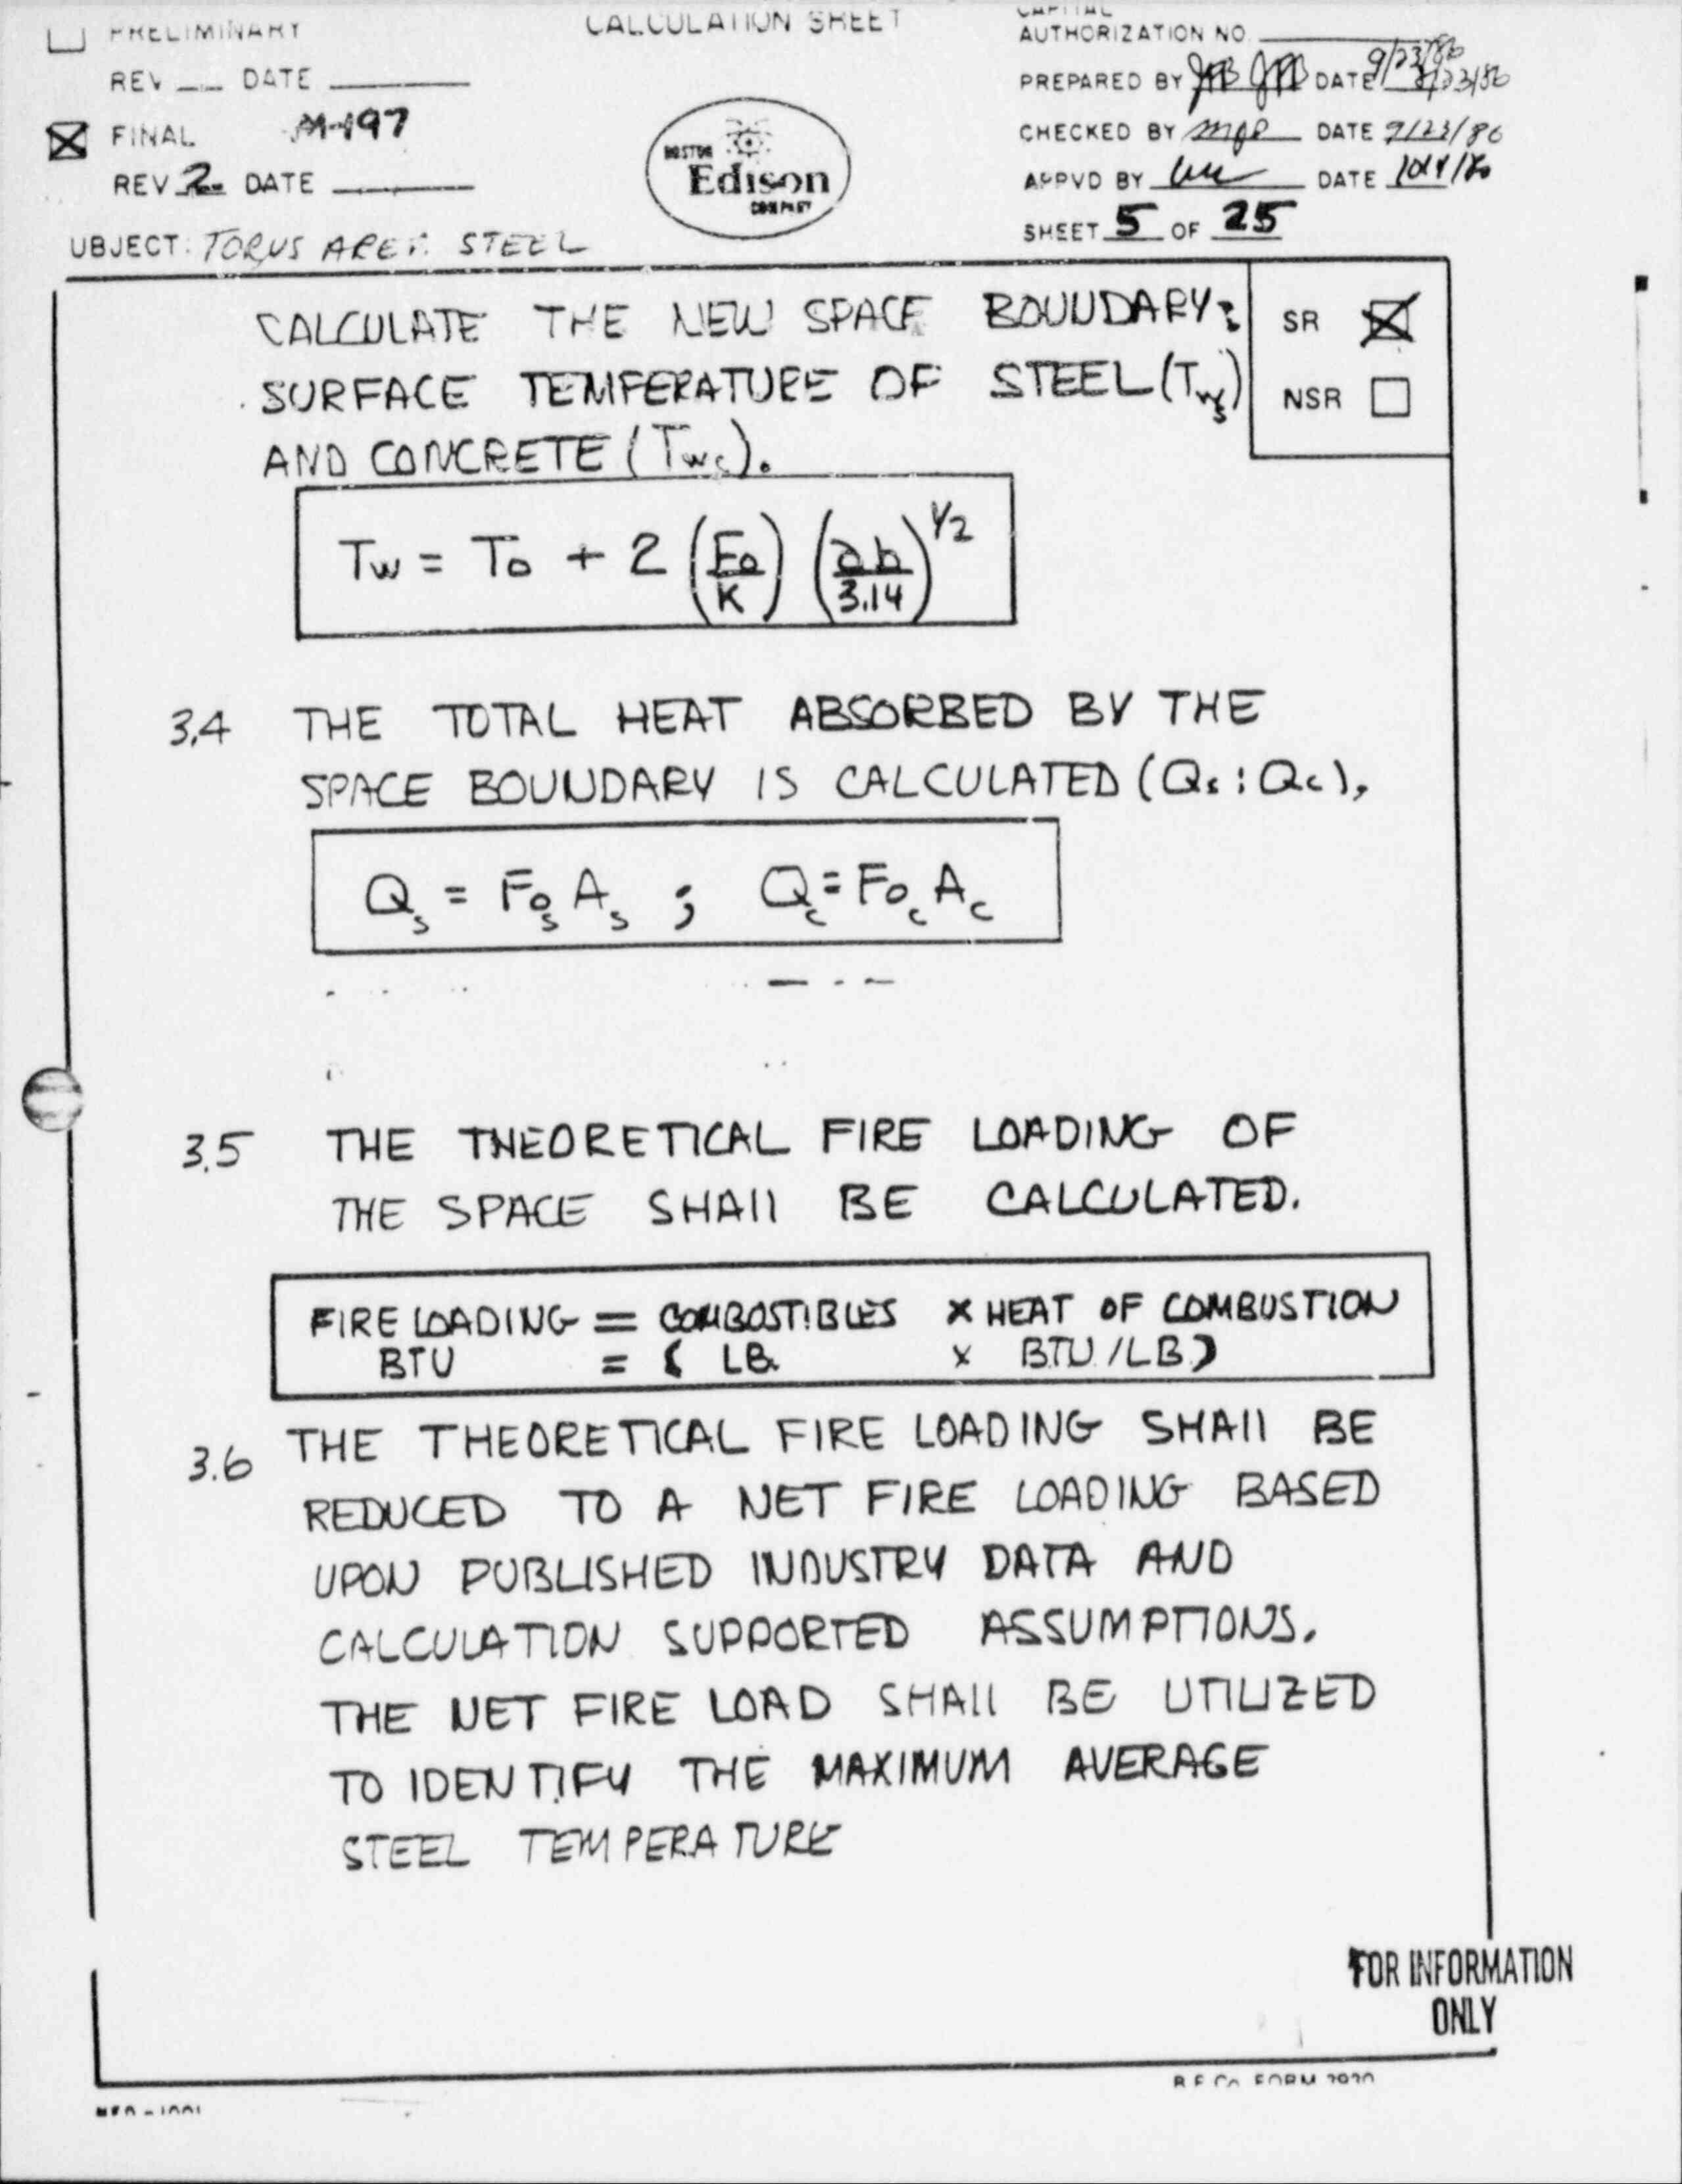 PRELIMINARY
CALCULATION SHEET
CAPITAL
AUTHORIZATION NO.
REV DATE
PREPARED BY DATE 9/23/86
FINAL M-197
BOSTON
Edison
COMPANY
CHECKED BY DATE 9/23/86
REV 2 DATE
APPVD BY DATE
SHEET 5 OF 25
UBJECT: TORUS STEEL
CALCULATE THE NEW SPACE BOUNDARY;
SR
SURFACE TEMPERATURE OF STEEL (Tws)
NSR
AND CONCRETE (Twc).
Tw = To + 2 (Fo/K) (ab/3.14)^1/2
3.4 THE TOTAL HEAT ABSORBED BY THE
SPACE BOUNDARY IS CALCULATED (Qs ; Qc),
Qs = Fos As ; Qc = Foc Ac
3.5 THE THEORETICAL FIRE LOADING OF
THE SPACE SHAll BE CALCULATED.
FIRE LOADING = COMBOSTIBLES X HEAT OF COMBUSTION
BTU = ( LB. X BTU /LB )
3.6 THE THEORETICAL FIRE LOADING SHAll BE
REDUCED TO A NET FIRE LOADING BASED
UPON PUBLISHED INDUSTRY DATA AND
CALCULATION SUPPORTED ASSUMPTIONS.
THE NET FIRE LOAD SHAll BE UTILIZED
TO IDENTIFY THE MAXIMUM AVERAGE
STEEL TEMPERATURE
FOR INFORMATION
ONLY